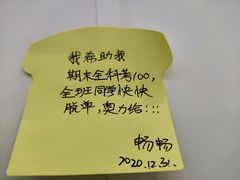 我希助我
期末全科考100,
全班同学快快
脱单,奥力给!!!
畅畅
2020.12.31.